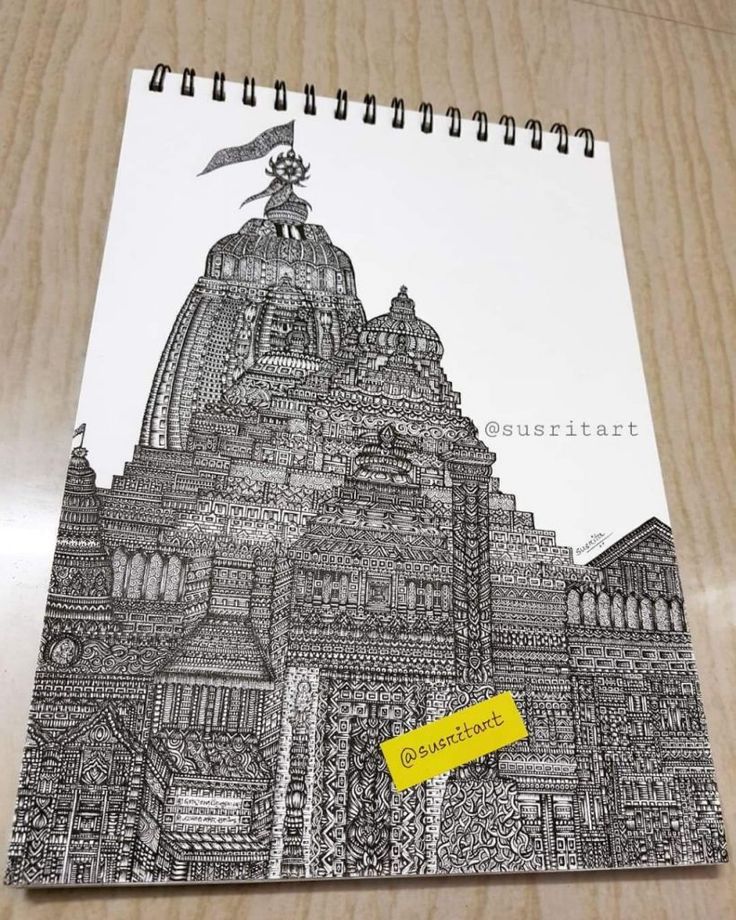 @susritart
Susrita
@susritart